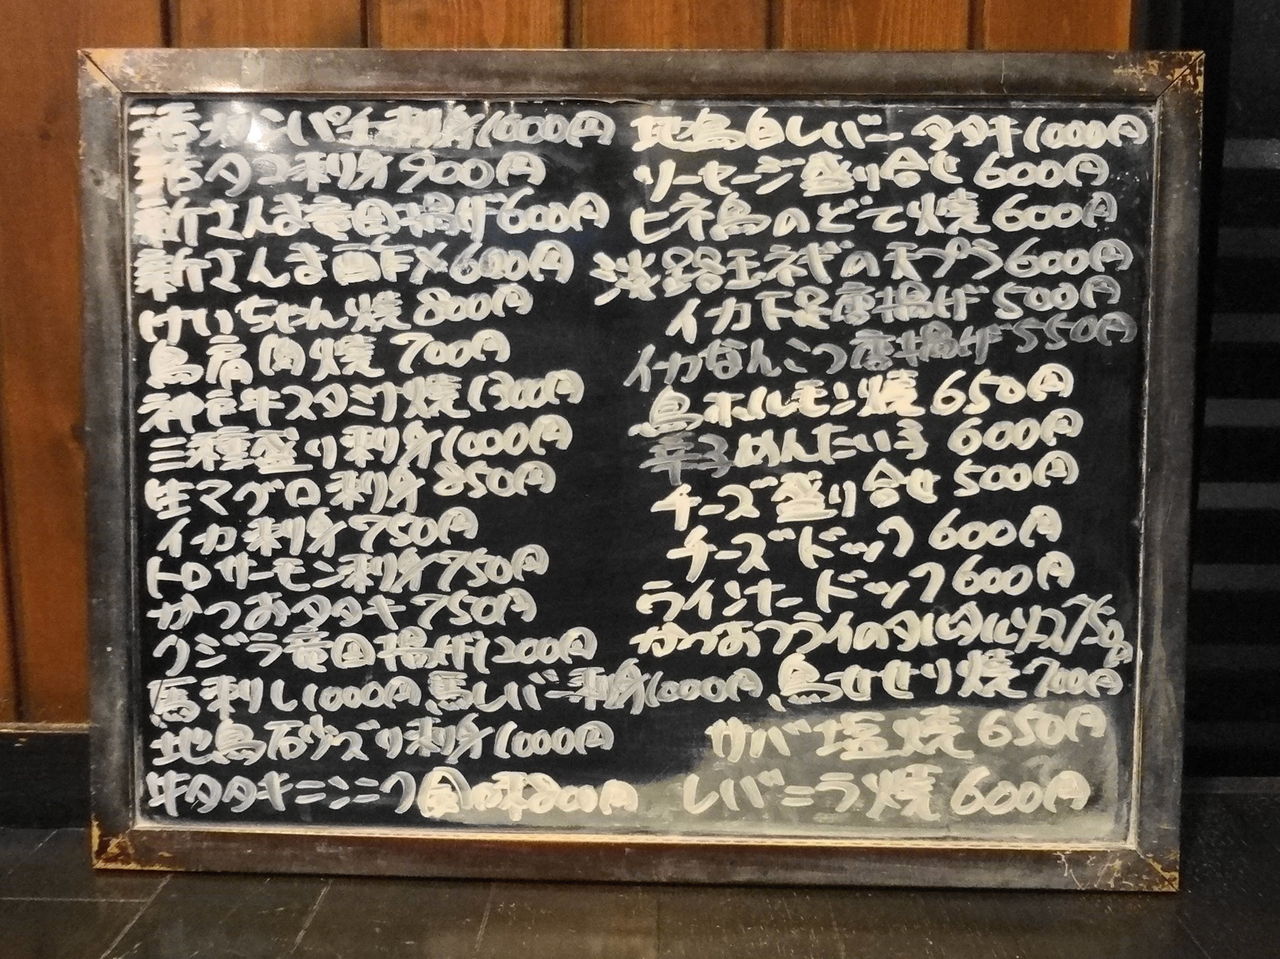 活カンパチ刺身1000円
活タコ刺身900円
新さんま竜田揚げ600円
新さんま酢〆600円
けいちゃん焼800円
鳥肩肉焼700円
神戸牛スタミナ焼1300円
三種盛り刺身1000円
生マグロ刺身850円
イカ刺身750円
トロサーモン刺身750円
かつおタタキ750円
クジラ竜田揚げ1200円
馬刺し1000円 馬レバー刺身1000円
地鳥石ズリ刺身1000円
牛タタキニンニク
地鳥白レバータタキ1000円
ソーセージ盛り合せ600円
ヒネ鳥のどて焼600円
淡路玉ネギの天プラ600円
イカ下足唐揚げ500円
イカなんこつ唐揚げ550円
鳥ホルモン焼650円
辛子めんたい子600円
チーズ盛り合せ500円
チーズドッグ600円
ウインナードッグ600円
かつおフライのタルタルソース750円
鳥せせり焼700円
サバ塩焼650円
レバニラ焼600円